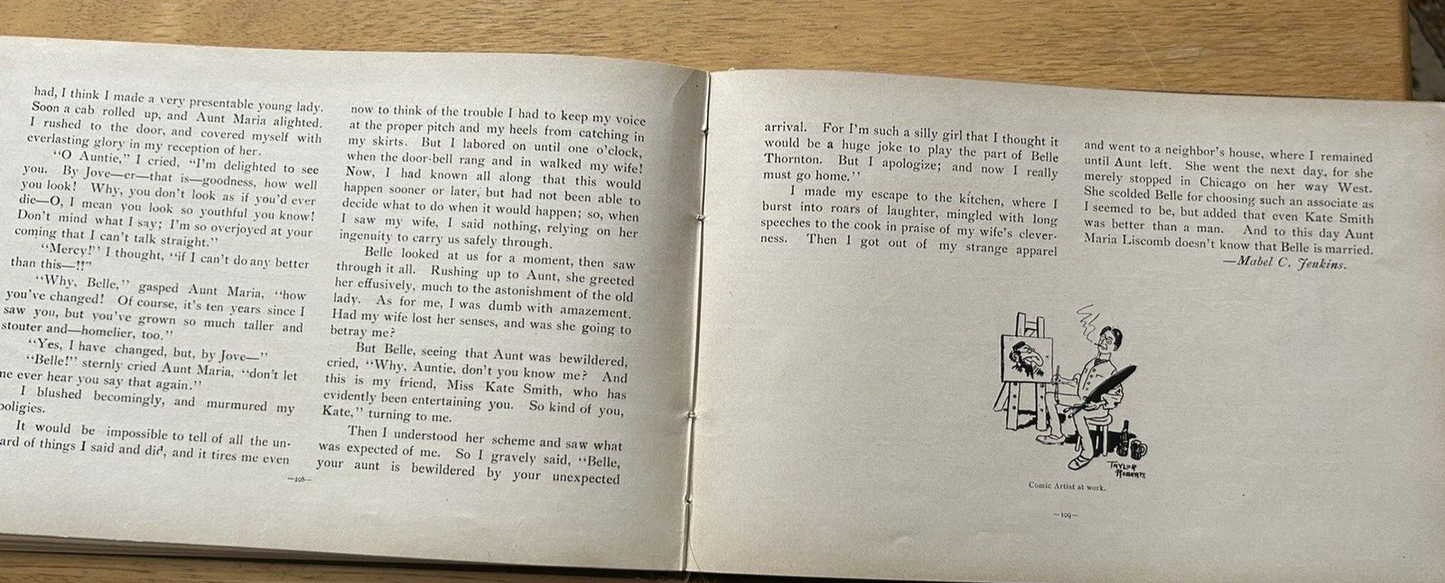 had, I think I made a very presentable young lady.
Soon a cab rolled up, and Aunt Maria alighted.
I rushed to the door, and covered myself with
everlasting glory in my reception of her.
"O Auntie," I cried, "I'm delighted to see
you. By Jove—er—that is—goodness, how well
you look! Why, you don't look as if you'd ever
die—O, I mean you look so youthful you know!
Don't mind what I say; I'm so overjoyed at your
coming that I can't talk straight."
"Mercy!" I thought, "if I can't do any better
than this—!!"
"Why, Belle," gasped Aunt Maria, "how
you've changed! Of course, it's ten years since I
saw you, but you've grown so much taller and
stouter and—homelier, too."
"Yes, I have changed, but, by Jove—"
"Belle!" sternly cried Aunt Maria, "don't let
ne ever hear you say that again."
I blushed becomingly, and murmured my
poligies.
It would be impossible to tell of all the un-
ard of things I said and did, and it tires me even
—108—
now to think of the trouble I had to keep my voice
at the proper pitch and my heels from catching in
my skirts. But I labored on until one o'clock,
when the door-bell rang and in walked my wife!
Now, I had known all along that this would
happen sooner or later, but had not been able to
decide what to do when it would happen; so, when
I saw my wife, I said nothing, relying on her
ingenuity to carry us safely through.
Belle looked at us for a moment, then saw
through it all. Rushing up to Aunt, she greeted
her effusively, much to the astonishment of the old
lady. As for me, I was dumb with amazement.
Had my wife lost her senses, and was she going to
betray me?
But Belle, seeing that Aunt was bewildered,
cried, "Why, Auntie, don't you know me? And
this is my friend, Miss Kate Smith, who has
evidently been entertaining you. So kind of you,
Kate," turning to me.
Then I understood her scheme and saw what
was expected of me. So I gravely said, "Belle,
your aunt is bewildered by your unexpected
arrival. For I'm such a silly girl that I thought it
would be a huge joke to play the part of Belle
Thornton. But I apologize; and now I really
must go home."
I made my escape to the kitchen, where I
burst into roars of laughter, mingled with long
speeches to the cook in praise of my wife's clever-
ness. Then I got out of my strange apparel
and went to a neighbor's house, where I remained
until Aunt left. She went the next day, for she
merely stopped in Chicago on her way West.
She scolded Belle for choosing such an associate as
I seemed to be, but added that even Kate Smith
was better than a man. And to this day Aunt
Maria Liscomb doesn't know that Belle is married.
—Mabel C. Jenkins.
TAYLOR
ROBERTS
Comic Artist at work.
—109—